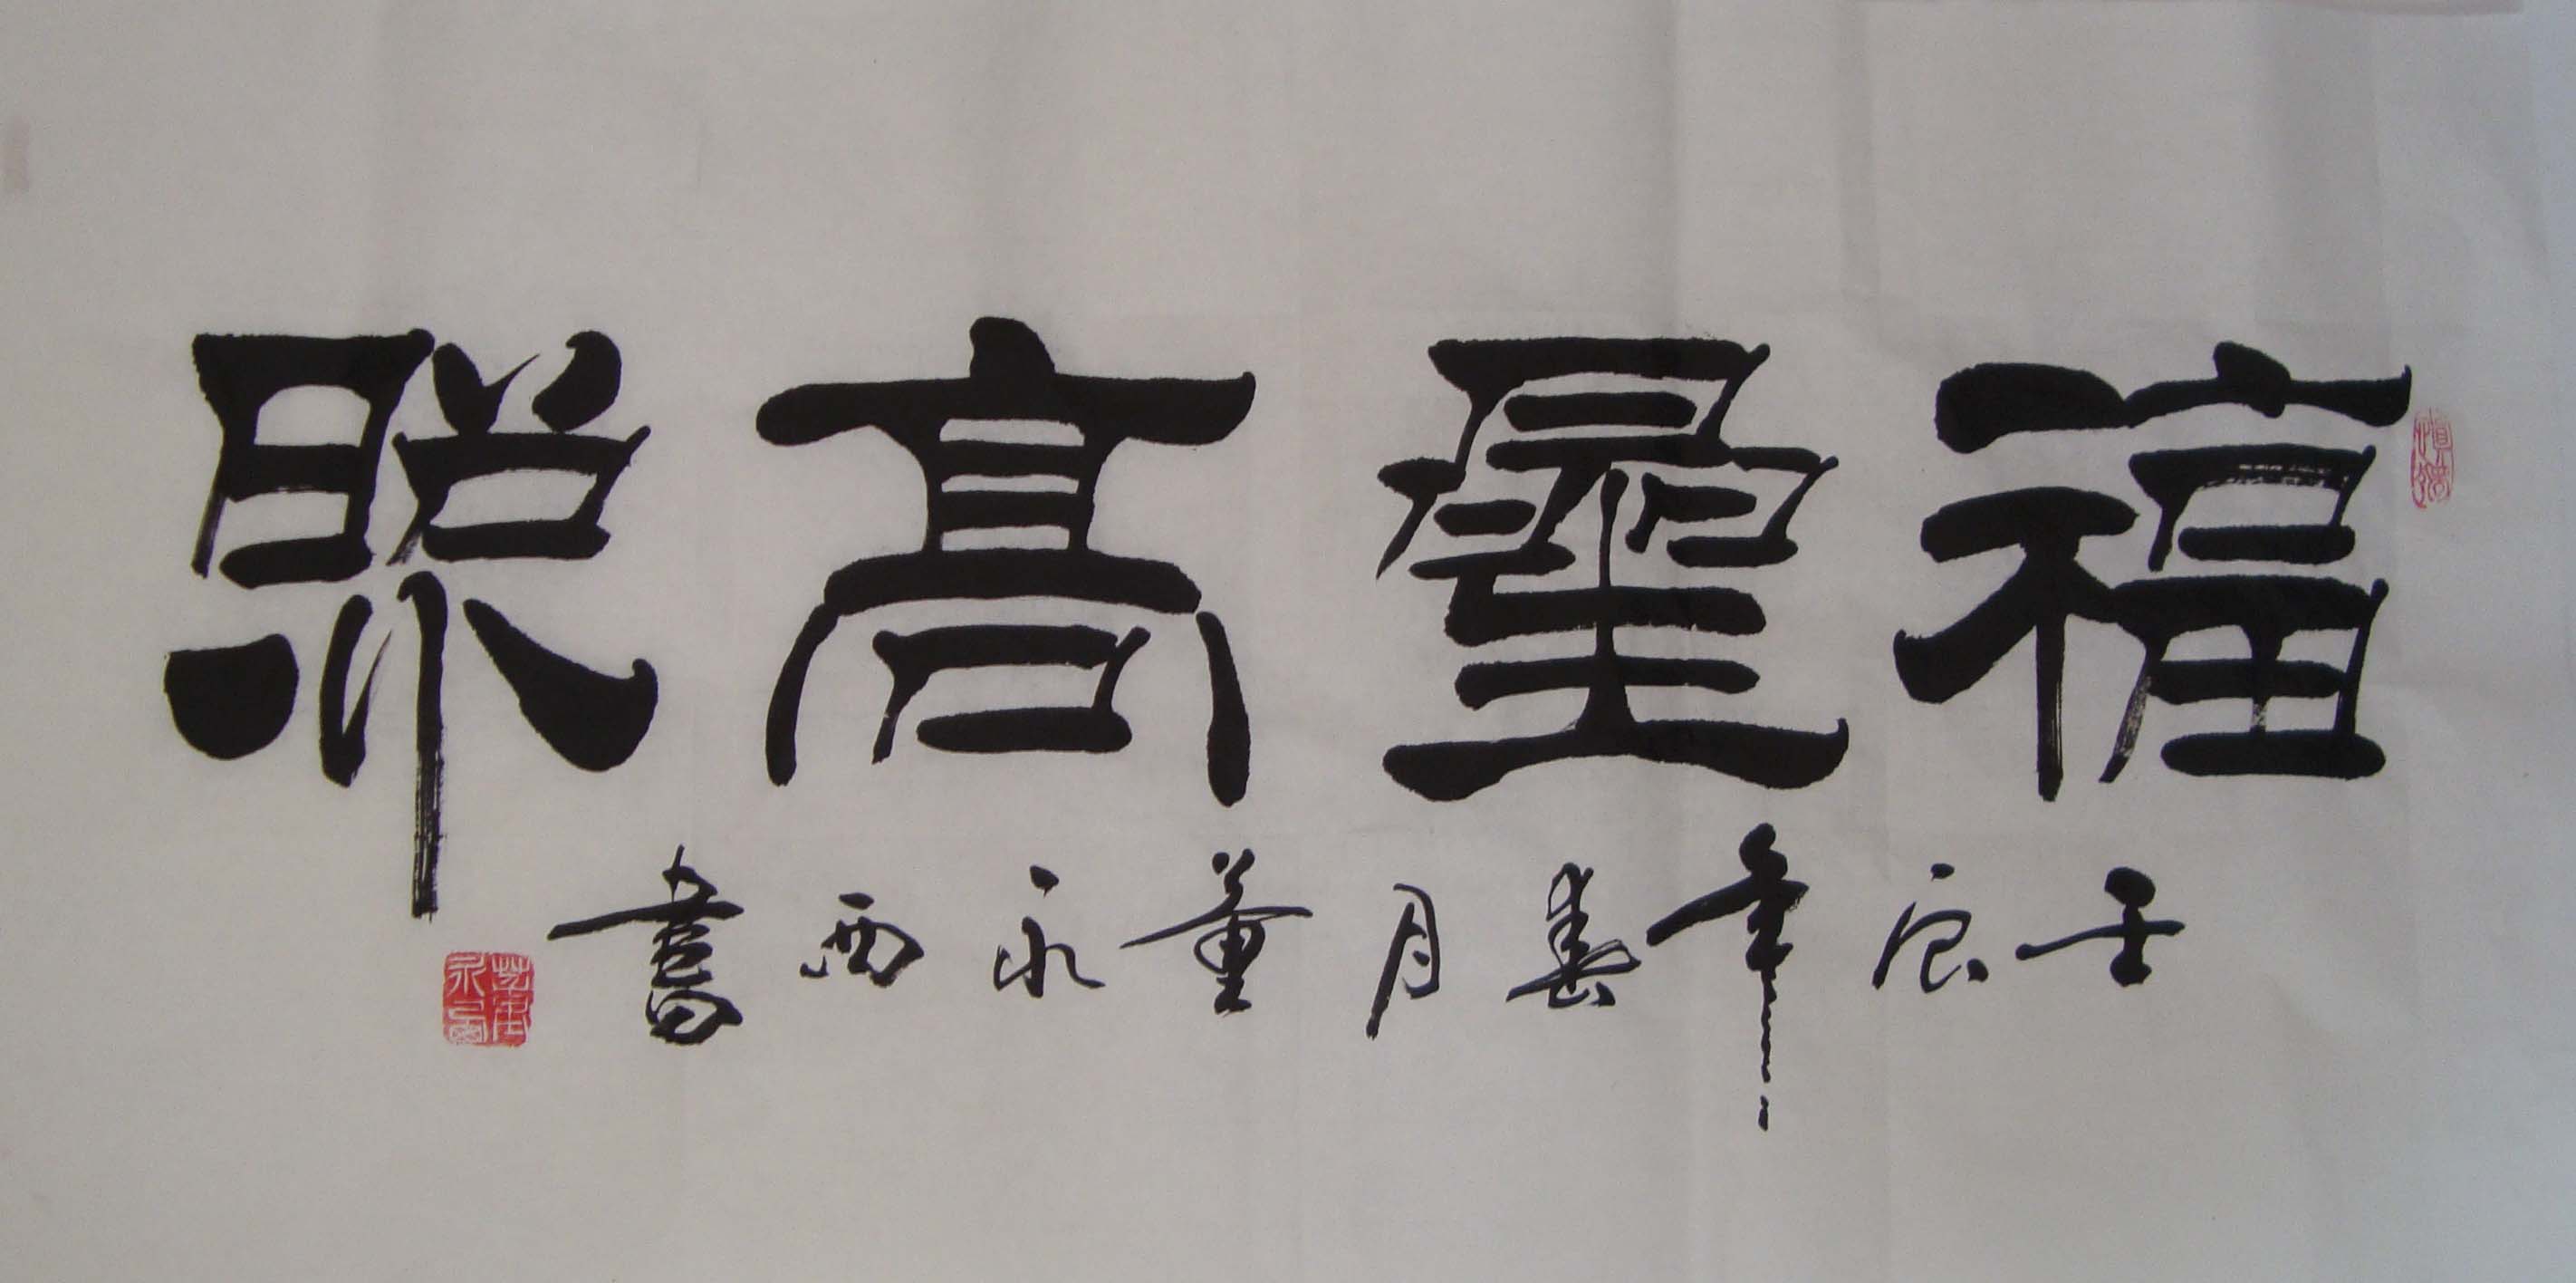 福星高照
壬辰年春月董永西書
董永西